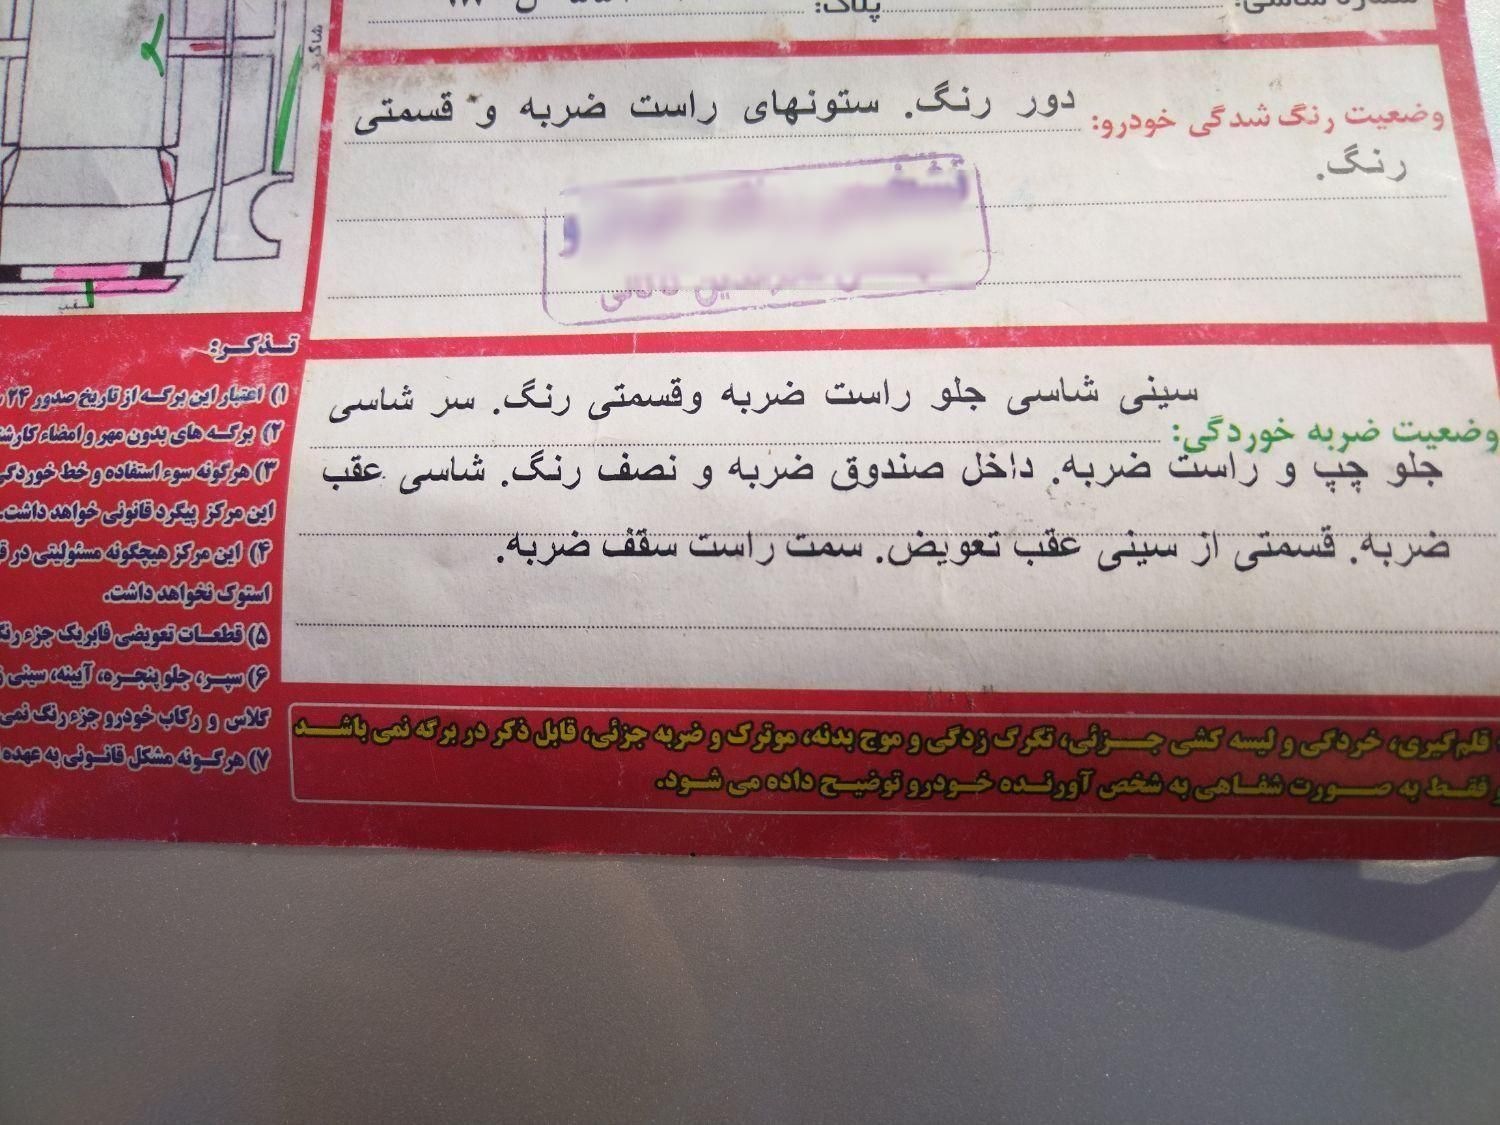 شماره شاسی:
پلاک:
شاگرد
وضعیت رنگ شدگی خودرو: دور رنگ. ستونهای راست ضربه و قسمتی
رنگ.
و
عقب
وضعیت ضربه خوردگی: سینی شاسی جلو راست ضربه وقسمتی رنگ. سر شاسی
جلو چپ و راست ضربه. داخل صندوق ضربه و نصف رنگ. شاسی عقب
ضربه. قسمتی از سینی عقب تعویض. سمت راست سقف ضربه.
تذکر:
۱) اعتبار این برگه از تاریخ صدور ۲۴
۲) برگه های بدون مهر و امضاء
۳) هرگونه سوء استفاده و خط خوردگی
این مرکز پیگرد قانونی خواهد داشت.
۴) این مرکز هیچگونه مسئولیتی در
استوک نخواهد داشت.
۵) قطعات تعویضی فابریک جزء
۶) سپر، جلو پنجره، آیینه، سینی
گلاس و رکاب خودرو جزء رنگ
۷) هرگونه مشکل قانونی به عهده
قلم‌گیری، خردگی و لیسه کشی جزئی، تگرگ زدگی و موج بدنه، موترک و ضربه جزئی، قابل ذکر در برگه نمی باشد
فقط به صورت شفاهی به شخص آورنده خودرو توضیح داده می شود.